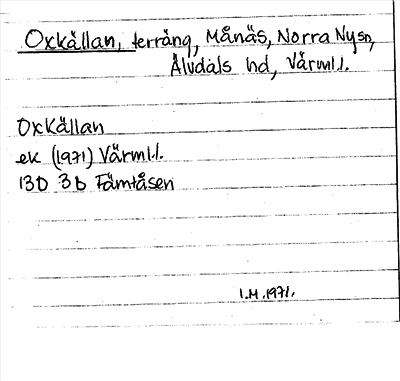 Oxkällan, terräng, Månäs, Norra Nysn,
Älvdals hd, Värml.
Oxkällan
ek (1971) Värml.
13D 3b Fämtåsen
I.M.1971.